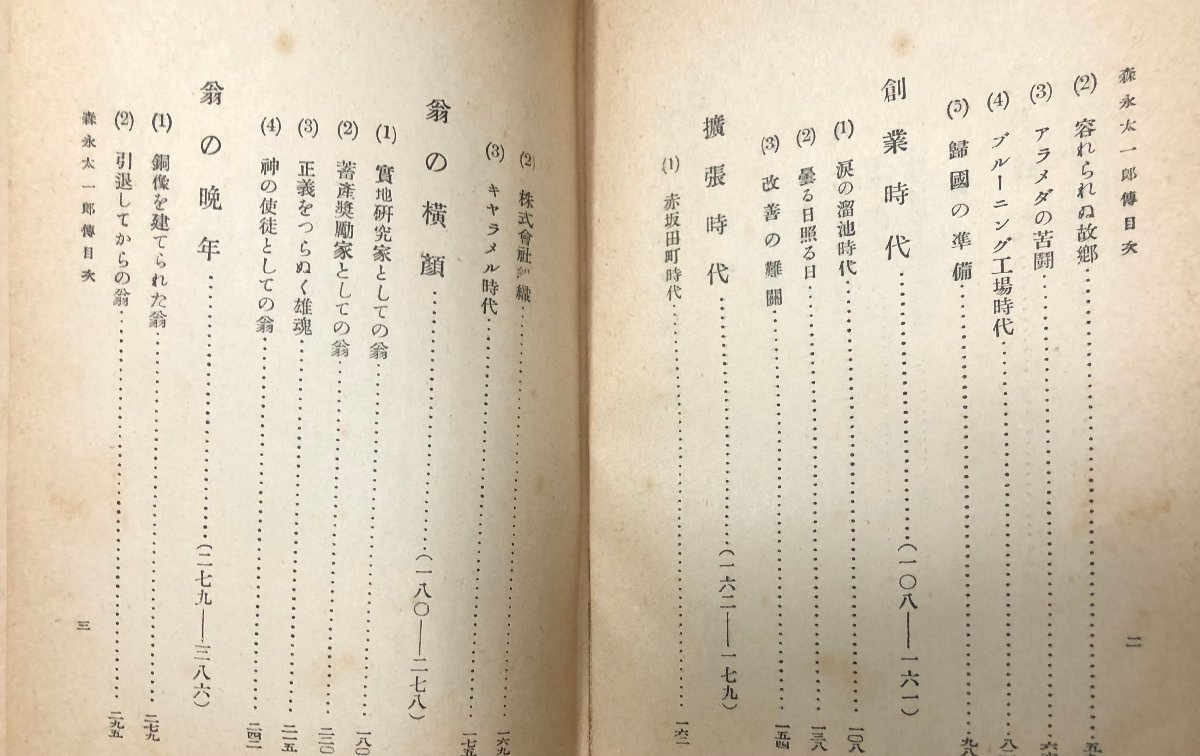 森永太一郎傳目次
(2) 容れられぬ故鄕
(3) アラメダの苦鬪
(4) ブルーニング工場時代
(5) 歸國の準備
創業時代(一〇八——一六一)
(1) 淚の溜池時代一〇八
(2) 曇る日照る日一三八
(3) 改善の難關一五四
擴張時代(一六二——一七九)
(1) 赤坂田町時代一六二
二
(2) 株式會社組織一六九
(3) キャラメル時代一七五
翁の橫顏(一八〇——二七八)
(1) 實地硏究家としての翁一八〇
(2) 蓄產奬勵家としての翁
(3) 正義をつらぬく雄魂二一五
(4) 神の使徒としての翁二四二
翁の晚年(二七九——三八六)
(1) 銅像を建てられた翁二七九
(2) 引退してからの翁二九五
森永太一郎傳目次
三